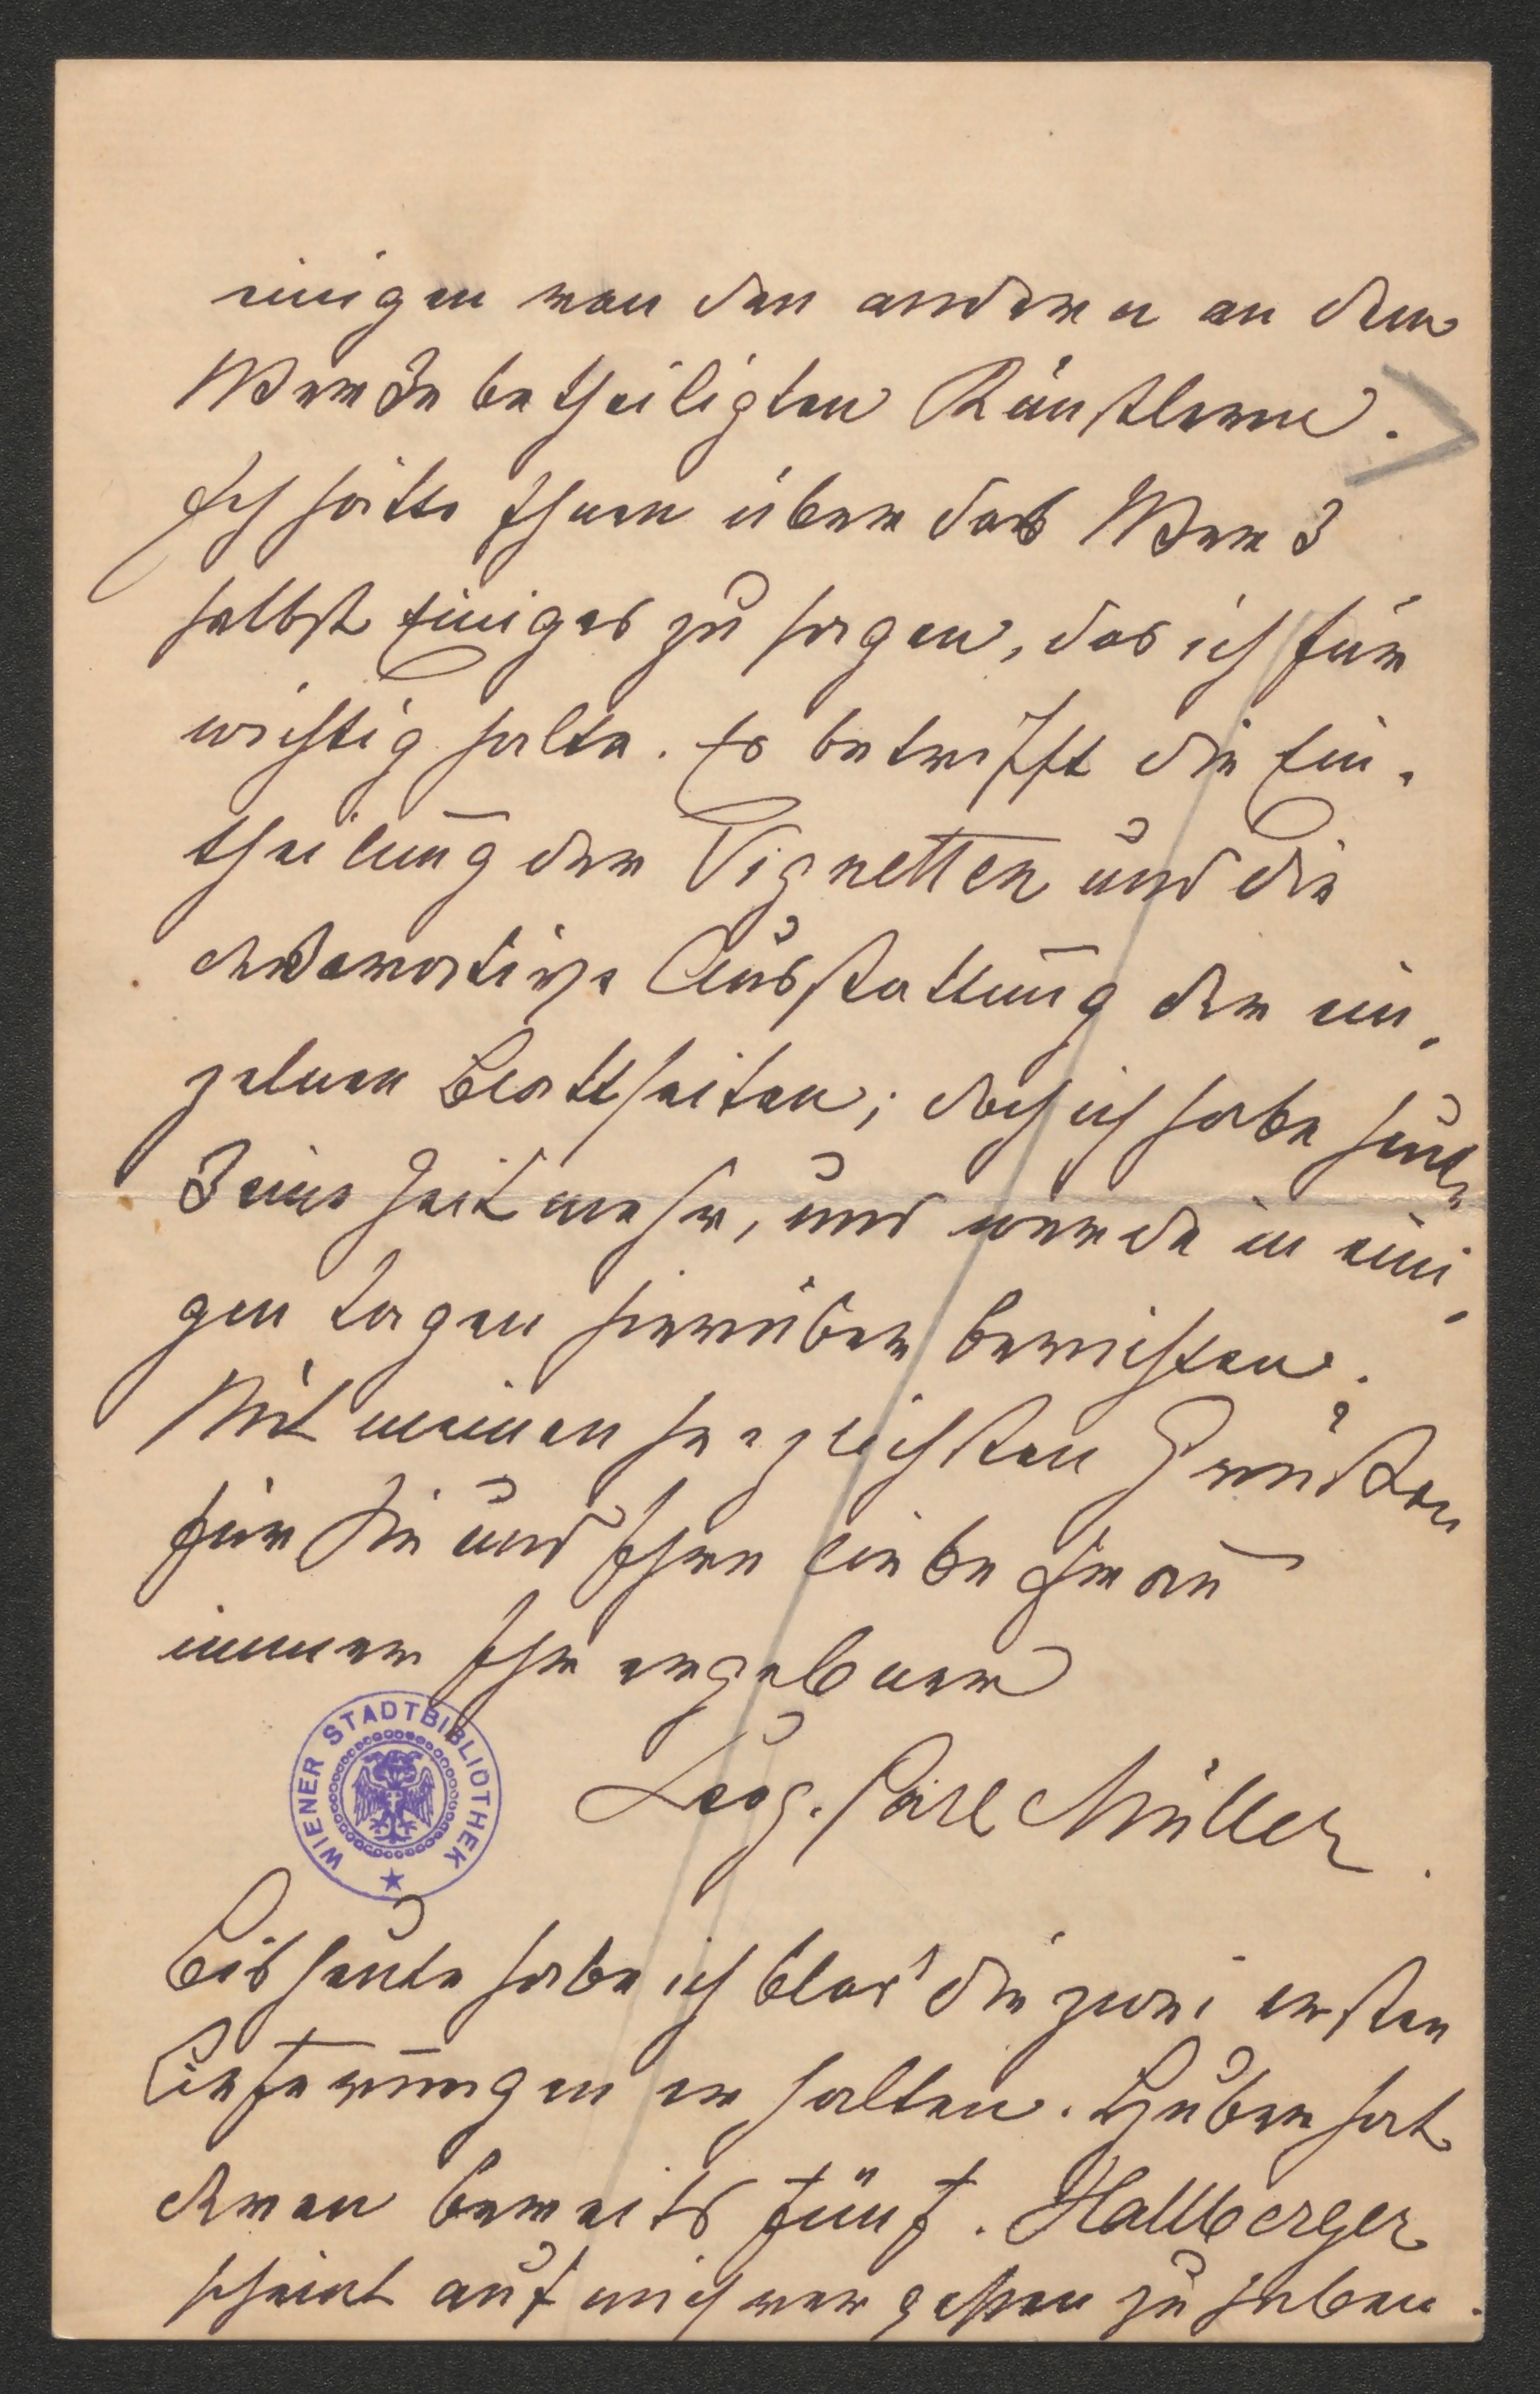 einigen von den anderen an dem
Werke betheiligten Künstlern.
Ich hätte Ihnen über das Werk
selbst Einiges zu sagen, das ich für
wichtig halte. Es betrifft die Ein-
theilung der Vignetten und die
dekorative Ausstattung der ein-
zelnen Blattseiten; doch ich habe heute
keine Zeit mehr, und werde in eini-
gen Tagen hierüber berichten.
Mit meinen herzlichsten Grüßen
für Sie und Ihre liebe Frau
immer Ihr ergebener
Leop. Carl Müller.
WIENER STADTBIBLIOTHEK
Bis heute habe ich blos' die zwei ersten
Lieferungen erhalten. Huber hat
deren bereits fünf. Hallberger
scheint auf mich vergessen zu haben.